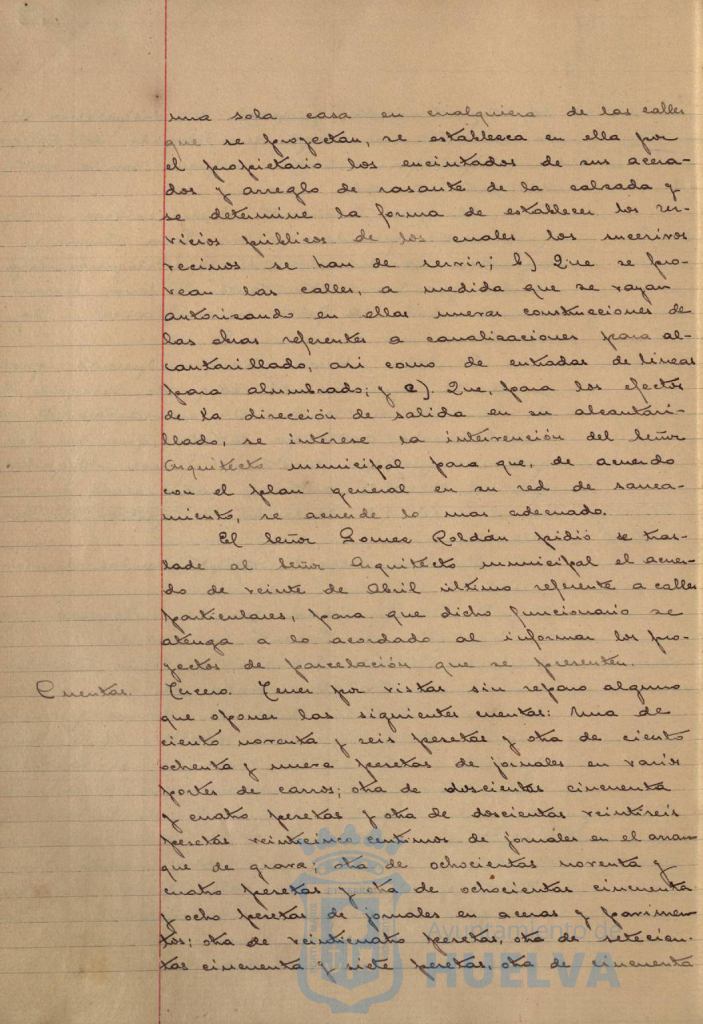 una sola casa en cualquiera de las calles
que se proyectan, se establezca en ella por
el propietario los encintados de sus acera-
dos y arreglo de rasante de la calzada y
se determine la forma de establecer los ser-
vicios públicos de los cuales los sucesivos
vecinos se han de servir; b) Que se pro-
vean las calles, a medida que se vayan
autorizando en ellas nuevas construcciones de
las obras referentes a canalizaciones para al-
cantarillado, asi como de entradas de lineas
para alumbrado; y c). Que, para los efectos
de la dirección de salida en su alcantari-
llado, se interese la intervención del Señor
Arquitecto municipal para que, de acuerdo
con el plan general en su red de sanea-
miento, se acuerde lo mas adecuado.
El Señor Gomez Roldán pidió se tras-
lade al Señor Arquitecto municipal el acuer-
do de veinte de Abril último referente a calles
particulares, para que dicho funcionario se
atenga a lo acordado al informar los pro-
yectos de parcelación que se presenten.
Cuentas. Tercero. Tener por vistas sin reparo alguno
que oponer las siguientes cuentas: Una de
ciento noventa y seis pesetas y otra de ciento
ochenta y nueve pesetas de jornales en varios
portes de carros; otra de doscientas cincuenta
y cuatro pesetas y otra de doscientas veintiseis
pesetas veinticinco centimos de jornales en el arran-
que de grava; otra de ochocientas noventa y
cuatro pesetas y otra de ochocientas cincuenta
y ocho pesetas de jornales en aceras y pavimen-
tos; otra de veinticuatro pesetas, otra de setecien-
tas cincuenta y siete pesetas, otra de cincuenta
Ayuntamiento de
HUELVA